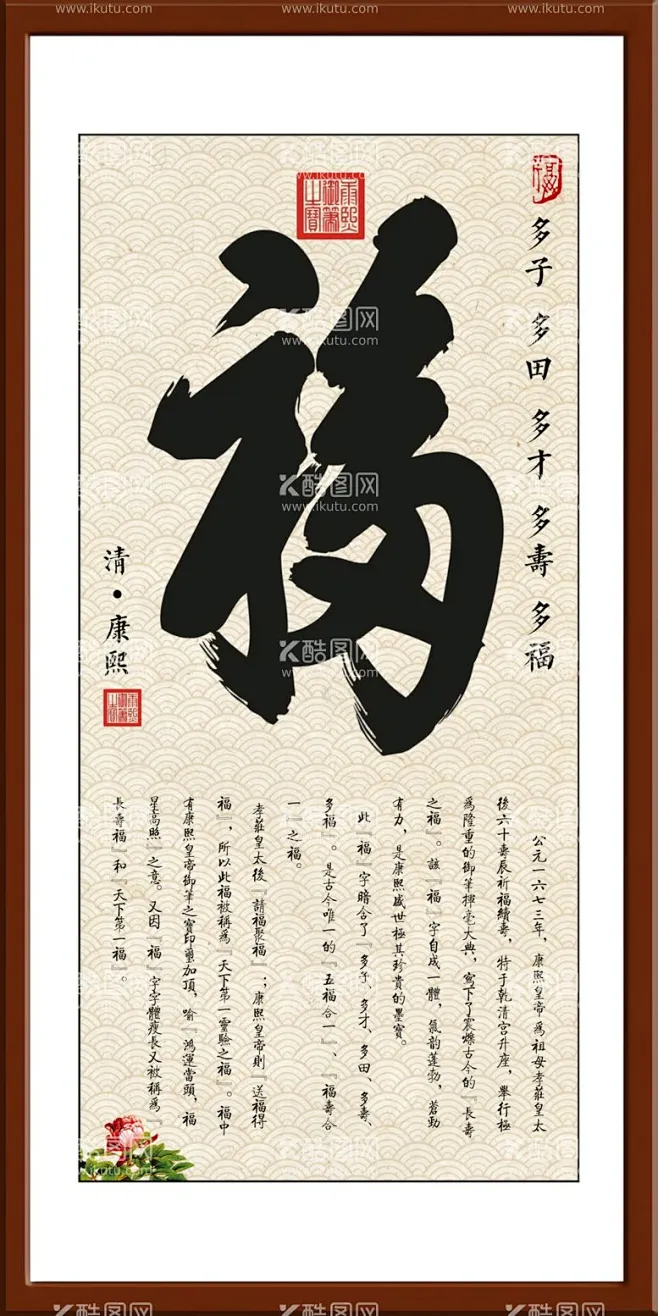 福
康熙御筆之寶
多子 多田 多才 多壽 多福
福
清·康熙
康熙御筆之寶
公元一六七三年，康熙皇帝為祖母孝莊皇太
後六十壽辰祈福續壽，特于乾清宮升座，舉行極
為隆重的御筆揮毫大典，寫下了震爍古今的『長壽
之福』。該『福』字自成一體，氣韵蓬勃，蒼勁
有力，是康熙盛世極其珍貴的墨寶。
此『福』字暗合了『多子、多才、多田、多壽、
多福』。是古今唯一的『五福合一』、『福壽合
一』之福。
孝莊皇太後『請福聚福』；康熙皇帝則『送福得
福』，所以此福被稱為『天下第一靈驗之福』。福中
有康熙皇帝御筆之寶印璽加頂，喻『鴻運當頭，福
星高照』之意。又因『福』字字體瘦長又被稱為『
長壽福』和『天下第一福』。
酷图网
www.ikutu.com